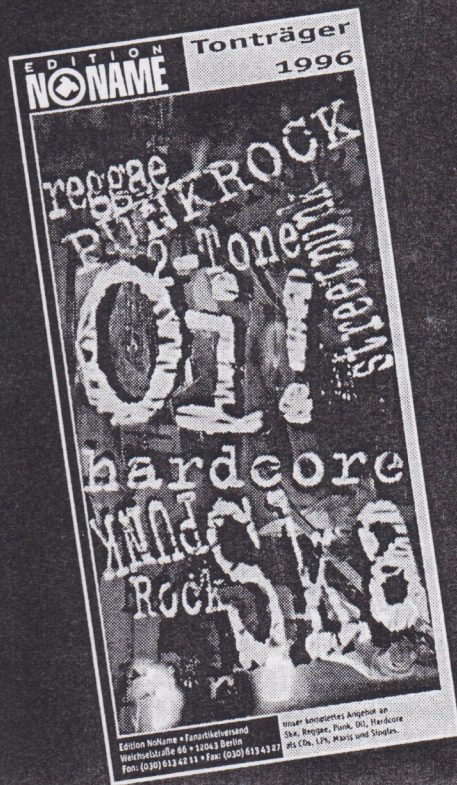 EDITION
NONAME
Tonträger
1996
reggae
PUNKROCK
2-Tone
streetpunk
Oi!
hardcore
PUNK
Rock
SKA
Edition NoName • Fanartikelversand
Weichselstraße 66 • 12043 Berlin
Fon: (030) 613 42 11 • Fax: (030) 613 43 27
Unser komplettes Angebot an
Ska, Reggae, Punk, Oi!, Hardcore
als CDs, LPs, Maxis und Singles.